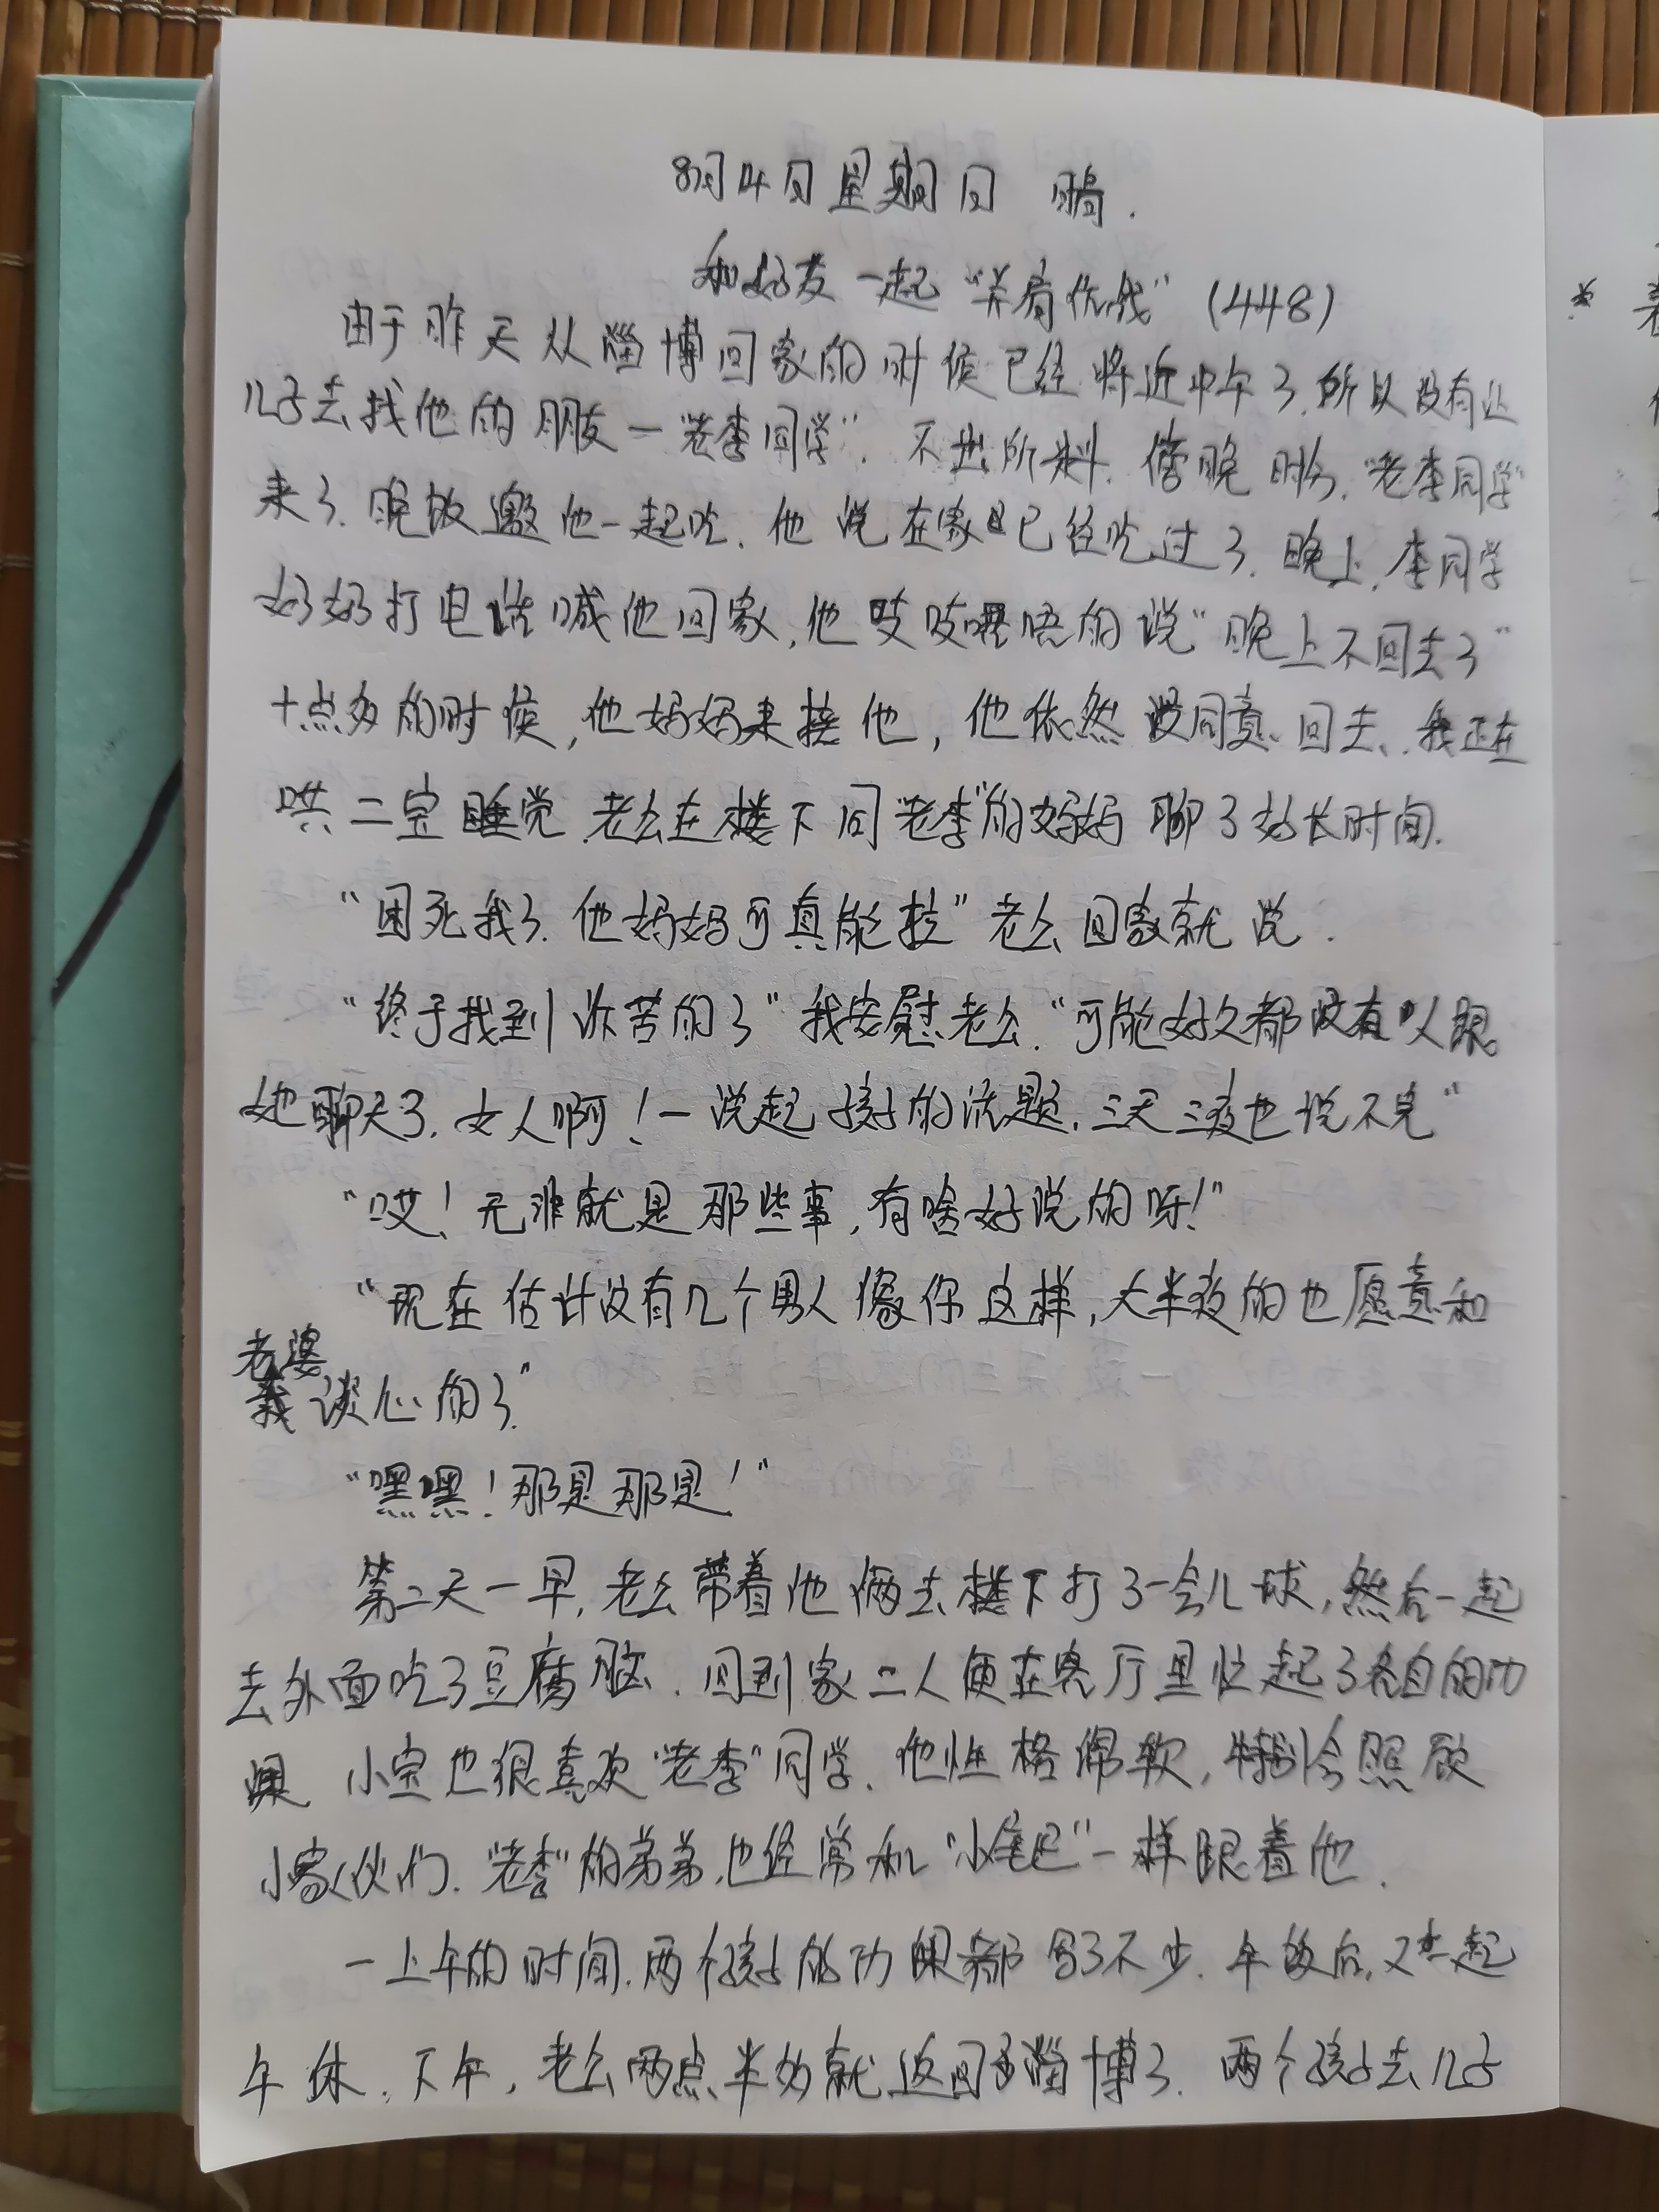 8月4日星期日 晴.
和好友一起“并肩作战”(448)
由于昨天从淄博回家的时候已经将近中午了.所以没有让
儿子去找他的朋友一“老李同学”.不出所料.傍晚时分.“老李同学”
来了.晚饭邀他一起吃.他说在家已经吃过了.晚上.李同学
妈妈打电话喊他回家,他吱吱唔唔的说“晚上不回去了”
十点多的时候,他妈妈来接他,他依然没同意回去.我正在
哄二宝睡觉.老公在楼下同“老李”的妈妈聊了好长时间.
“困死我了.他妈妈可真能拉”老公回家就说.
“终于找到诉苦的了”我安慰老公.“可能好久都没有人跟
她聊天了.女人啊!一说起孩子的话题.三天三夜也说不完”
“哎!无非就是那些事,有啥好说的呀!”
“现在估计没有几个男人像你这样,大半夜的也愿意和
老婆
谈心的了.”
“嘿嘿!那是那是!”
第二天一早,老公带着他俩去楼下打了一会儿球,然后一起
去外面吃了豆腐脑.回到家二人便在客厅里忙起了各自的功
课.小宝也很喜欢“老李”同学.他性格绵软,特别会照顾
小家伙们.“老李”的弟弟,也经常和“小尾巴”一样跟着他.
一上午的时间.两个孩子的功课都写了不少.午饭后,又一起
午休.下午,老公两点半多就返回淄博了.两个孩子去儿子